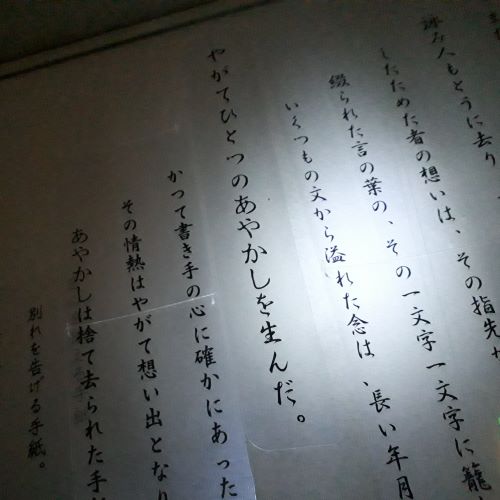 詠み人もとうに去り
したためた者の想いは、その指先
綴られた言の葉の、その一文字一文字に籠
いくつもの文から溢れた念は、長い年月
やがてひとつのあやかしを生んだ。
かつて書き手の心に確かにあった
その情熱はやがて想い出となり
あやかしは捨て去られた手
別れを告げる手紙。